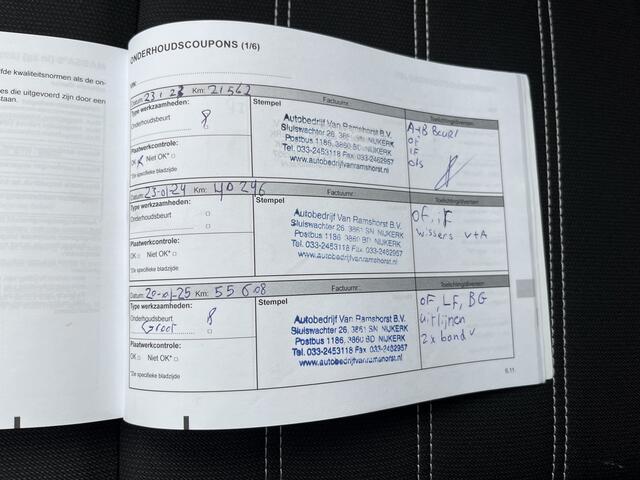 fde kwaliteitsnormen als de on-
ies die uitgevoerd zijn door een
staan.
ONDERHOUDSCOUPONS (1/6)
VIN:
Datum: 23 1 23 Km: 21562 Factuurnr. Toelichting/diversen
Type werkzaamheden: Stempel
Onderhoudsbeurt 8
Plaatwerkcontrole:
OK Niet OK* □
*De specifieke bladzijde
Autobedrijf Van Ramshorst B.V.
Sluiswachter 26, 3861 SN NIJKERK
Postbus 1186, 3860 BD NIJKERK
Tel. 033-2453118 Fax 033-2462957
www.autobedrijfvanramshorst.nl
A+B BEURT
OF
IF
Datum: 23-01-24 Km: 40246 Factuurnr.: Toelichting/diversen
Type werkzaamheden: Stempel
Onderhoudsbeurt □
□
Plaatwerkcontrole:
OK □ Niet OK* □
*De specifieke bladzijde
Autobedrijf Van Ramshorst B.V.
Sluiswachter 26, 3861 SN NIJKERK
Postbus 1186, 3860 BD NIJKERK
Tel. 033-2453118 Fax 033-2462957
www.autobedrijfvanramshorst.nl
OF, iF
wissers v+A
Datum: 20-01-25 Km: 55608 Factuurnr.: Toelichting/diversen
Type werkzaamheden: Stempel
Onderhoudsbeurt 8
Groot □
Plaatwerkcontrole:
OK □ Niet OK* □
*De specifieke bladzijde
Autobedrijf Van Ramshorst B.V.
Sluiswachter 26, 3861 SN NIJKERK
Postbus 1186, 3860 BD NIJKERK
Tel. 033-2453118 Fax 033-2462957
www.autobedrijfvanramshorst.nl
OF, LF, BG
uitlijnen
2x band v
6.11